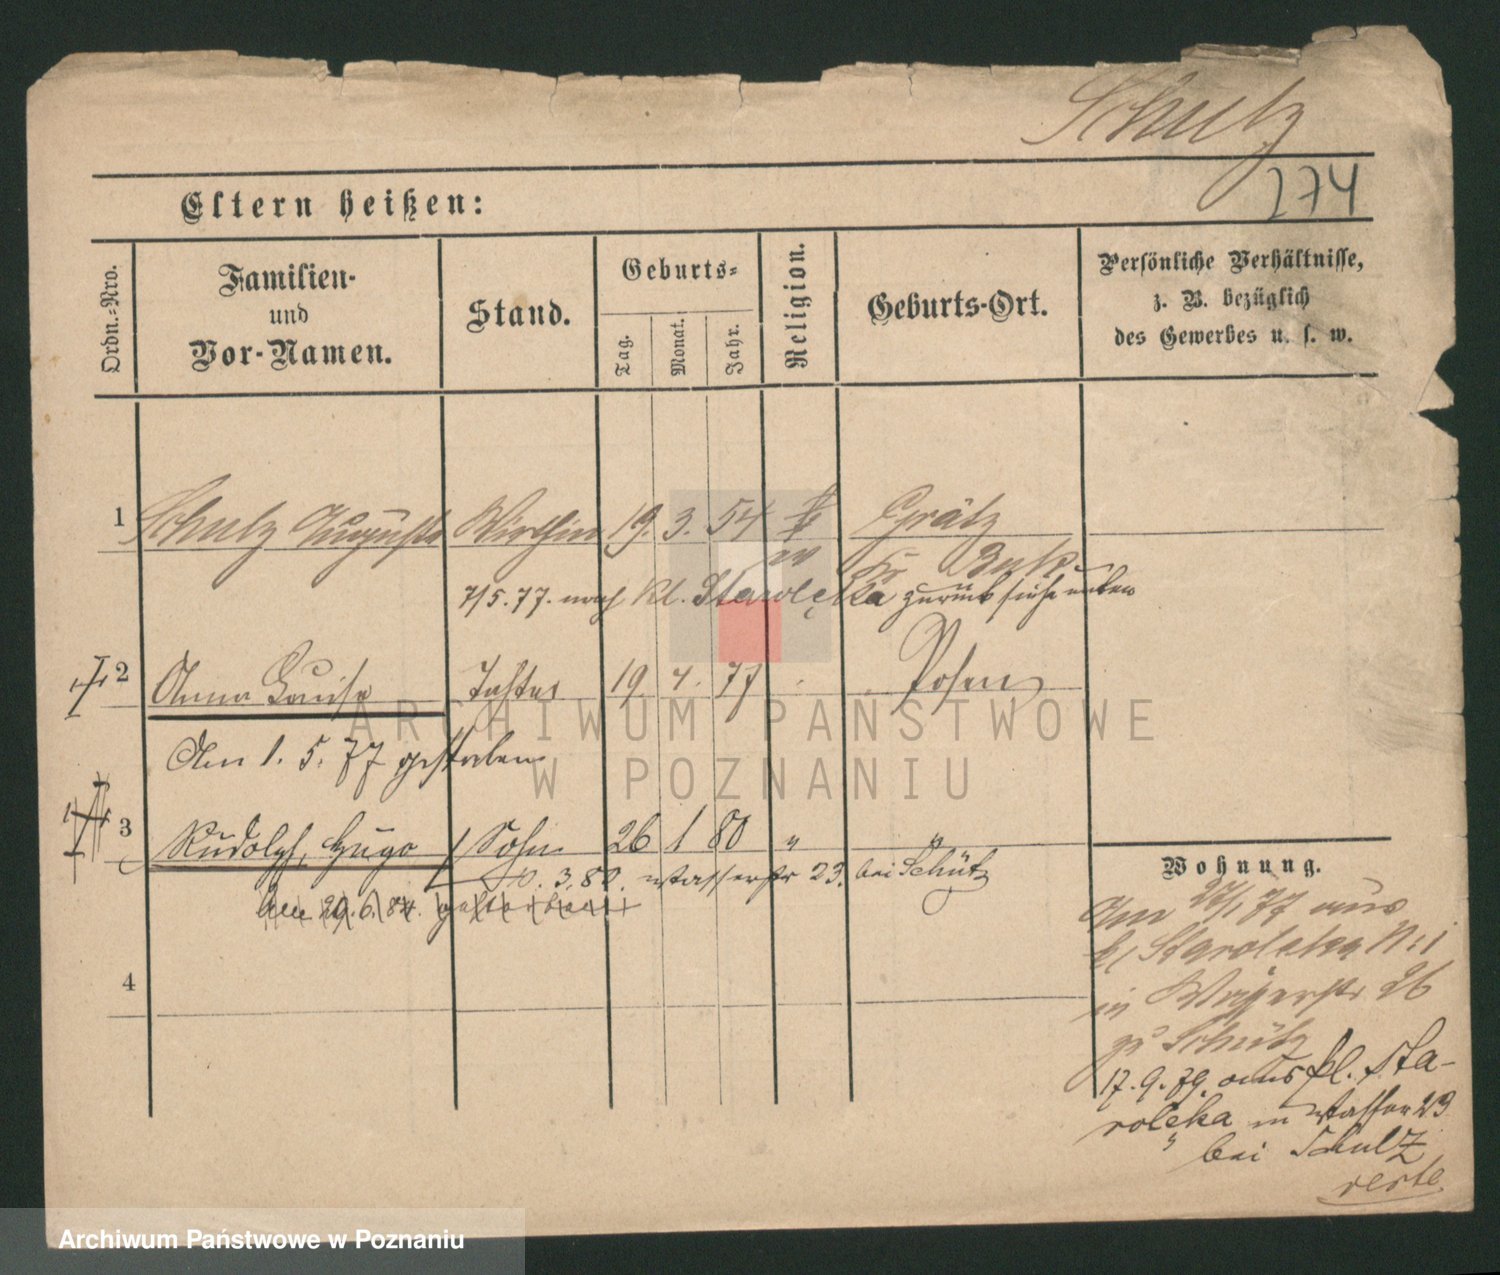 Schulz
274
Eltern heißen:
Ordn.-Nro.
Familien-
und
Vor-Namen.
Stand.
Geburts-
Tag.
Monat.
Jahr.
Religion.
Geburts-Ort.
Persönliche Verhältnisse,
z. B. bezüglich
des Gewerbes u. s. w.
1 Schulz Auguste Wirthin 19. 3. 54 ev Grätz
Kr Buk
7/5. 77. nach Kl. Starolęka zurück siehe unten
2 Anna Louise Tochter 19 4. 77 Posen
Am 1. 5. 77 gestorben
3 Rudolph, Hugo Sohn 26 1 80 " "
10. 3. 80. Wasserstr 23. bei Schütz
Am 20. 6. 84. gestorben
4
Wohnung.
Am 24/1 77 aus
Kl Staroleka N: 1
in Wasserstr 26
zu Schütz
17. 9. 79. aus Kl. Sta-
roleka in Wasser 23
bei Schulz
verte
ARCHIWUM PAŃSTWOWE
W POZNANIU
Archiwum Państwowe w Poznaniu